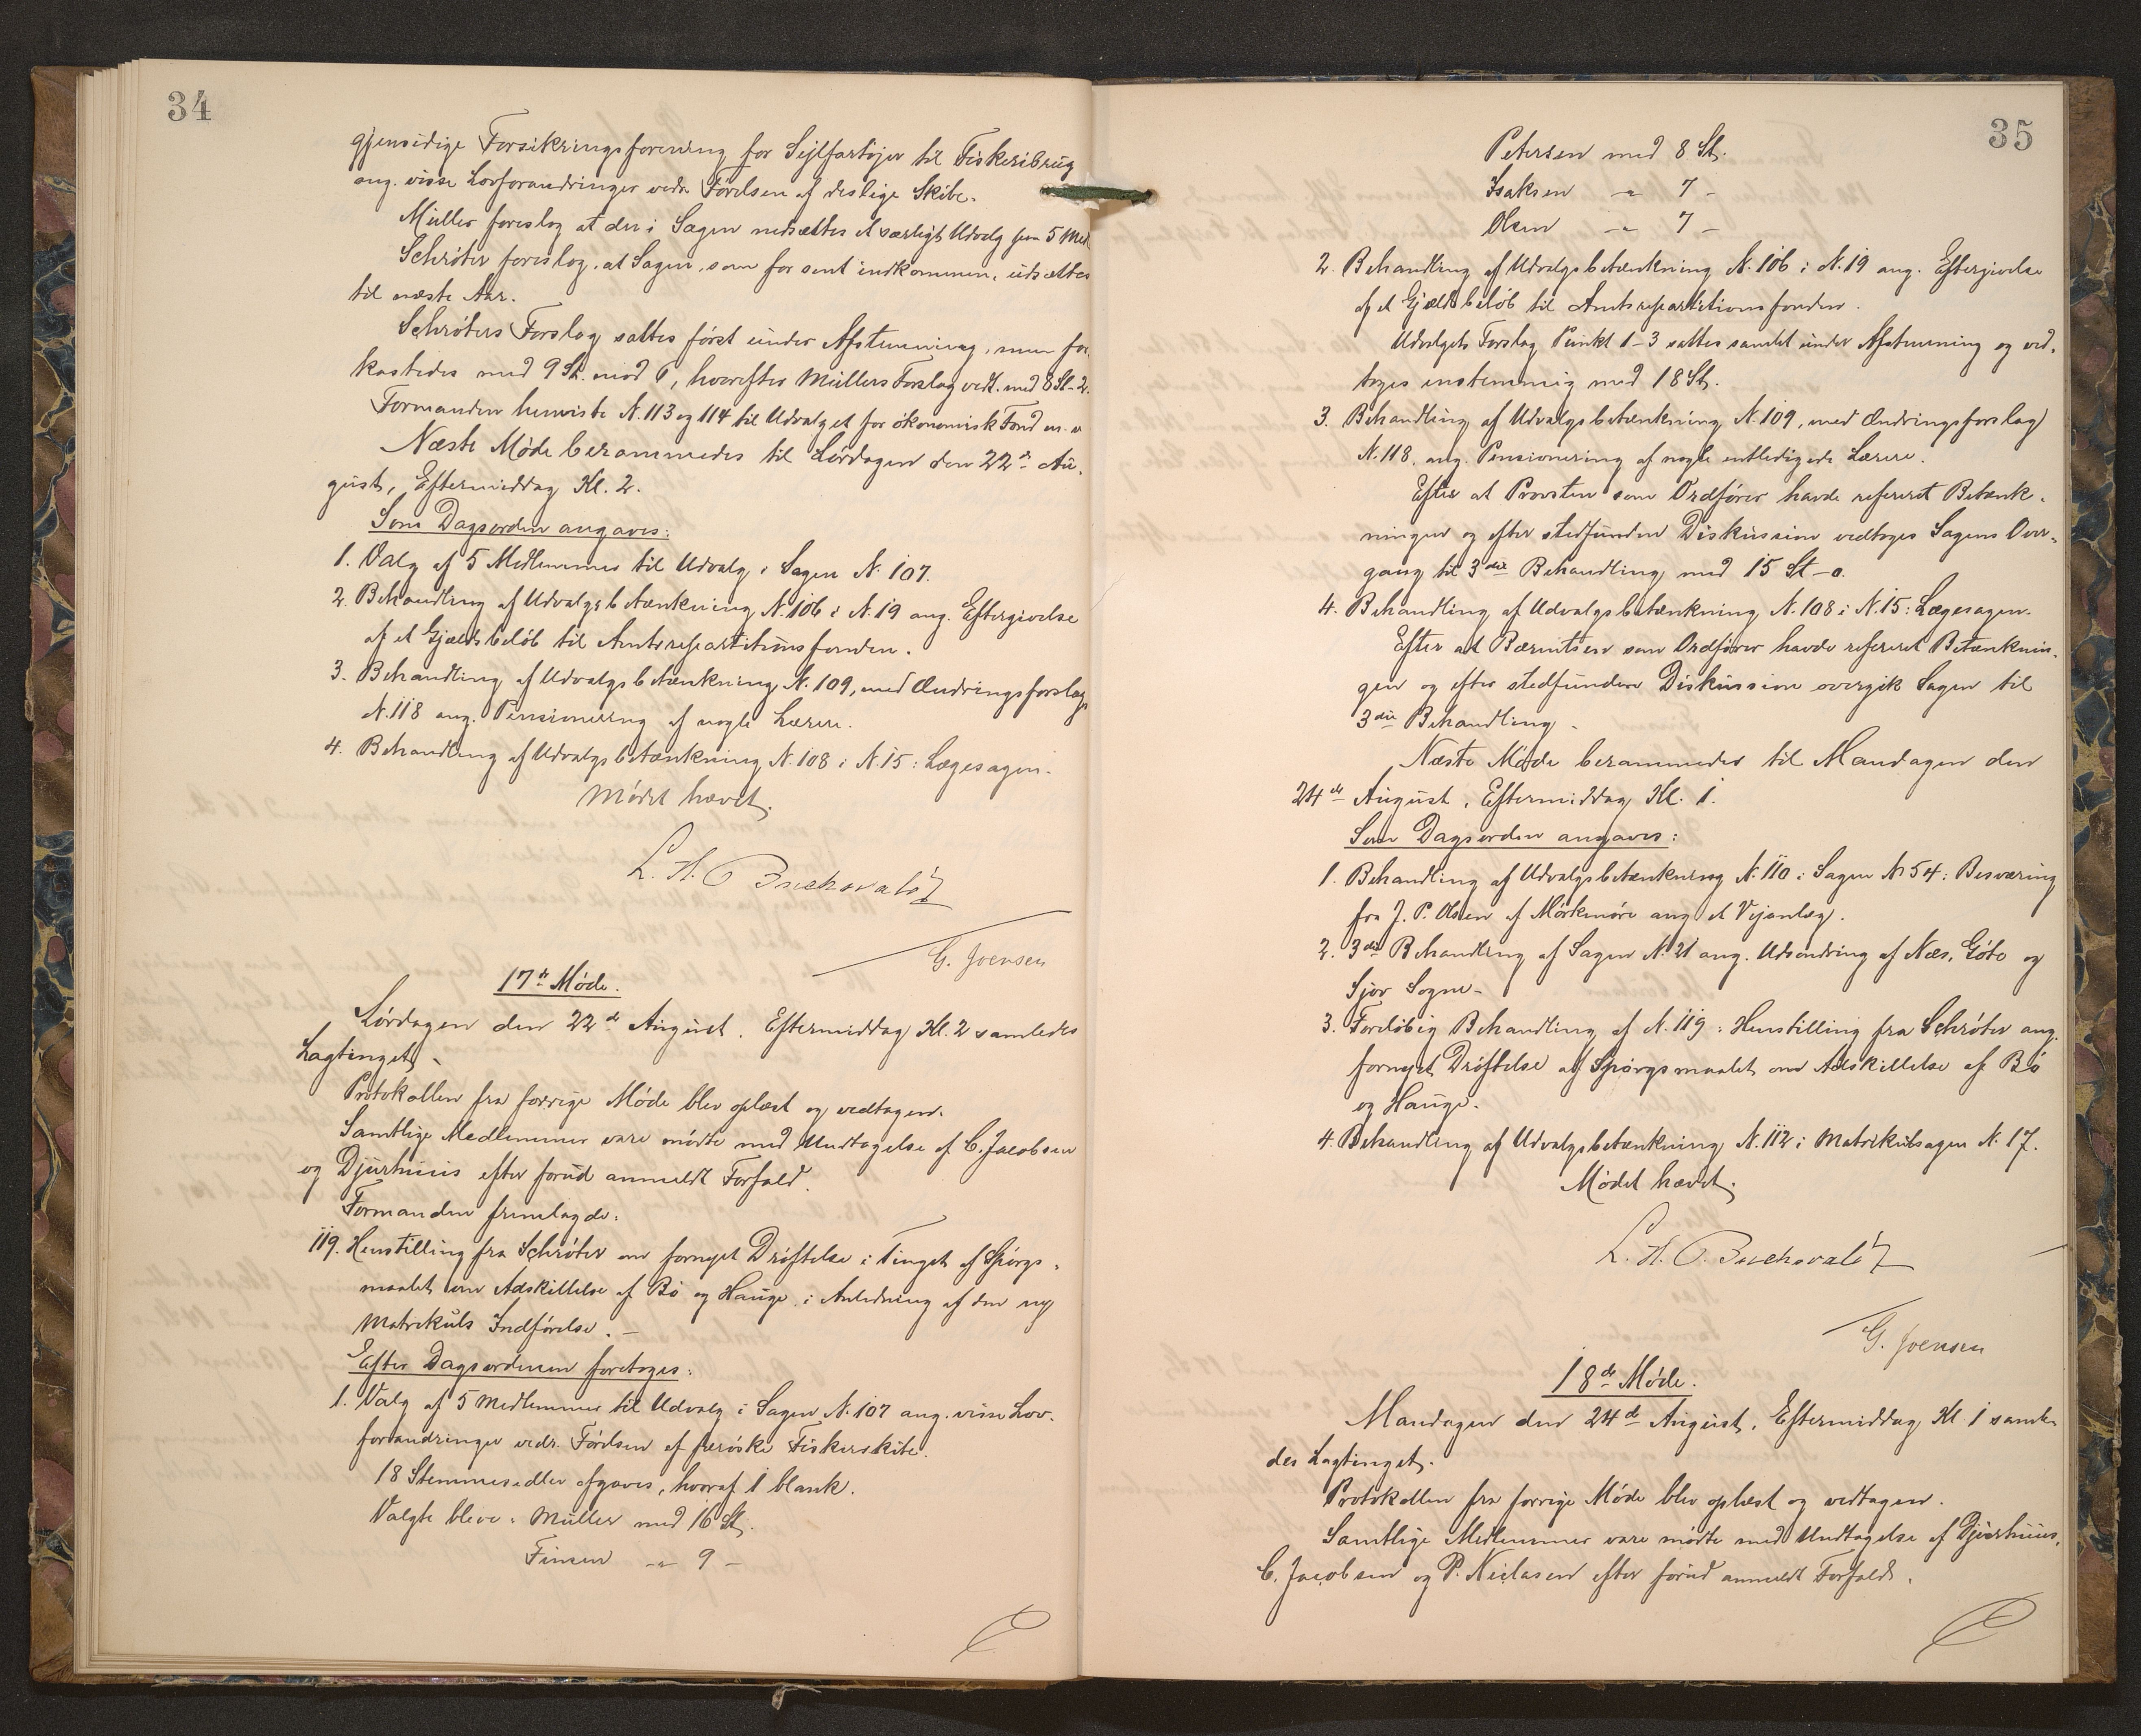 34
gjensidige Forsikringsforening for Sejlfartøjer til Fiskeribrug
ang. visse Lovforandringer vedr. Førelsen af deslige Skibe.
Müller foreslog at der i Sagen nedsættes et særligt Udvalg paa 5 Med.
Schrøter foreslog, at Sagen, som for sent indkommen, udsættes
til næste Aar.
Schrøters Forslag sattes først under Afstemning, men for-
kastedes med 9 St. mod 6, hvorefter Müllers Forslag vedt. med 8 St-2.
Formanden henviste N. 113 og 114 til Udvalget for økonomisk Fond m. v
Næste Møde berammedes til Lørdagen den 22de Au-
gust, Eftermiddag Kl. 2.
Som Dagsorden angaves:
1. Valg af 5 Medlemmer til Udvalg i Sagen N. 107.
2. Behandling af Udvalgsbetænkning N. 106 i N. 19 ang. Eftergivelse
af et Gjældsbeløb til Amtsrepartitionsfonden.
3. Behandling af Udvalgsbetænkning N. 109, med Ændringsforslag
N. 118 ang. Pensionering af nogle Lærere.
4. Behandling af Udvalgsbetænkning N. 108 i N. 15: Lægesagen.
Mødet hævet.
L. H. C. Buchwaldt
G. Joensen
17de Møde.
Lørdagen den 22de August. Eftermiddag Kl. 2 samledes
Lagtinget.
Protokollen fra forrige Møde blev oplæst og vedtagen.
Samtlige Medlemmer vare mødte med Undtagelse af C. Jacobsen
og Djurhuus efter forud anmeldt Forfald.
Formanden fremlagde:
119. Henstilling fra Schrøter om fornyet Drøftelse i Tinget af Spørgs-
maalet om Adskillelse af Bø og Hauge i Anledning af den ny
Matrikuls Indførelse. –
Efter Dagsordenen foretoges:
1. Valg af 5 Medlemmer til Udvalg i Sagen N. 107 ang. visse Lov-
forandringer vedr. Førelsen af færøske Fiskerskibe.
18 Stemmesedler afgaves, hvoraf 1 blank.
Valgte bleve: Müller med 16 St.
Finsen –"– 9 –
35
Petersen med 8 St.
Isaksen –"– 7 –
Olsen –"– 7 –
2. Behandling af Udvalgsbetænkning N. 106 i N. 19 ang. Eftergivelse
af et Gjældsbeløb til Amtsrepartitionsfonden.
Udvalgets Forslag Punkt 1–3 sattes samlet under Afstemning og ved-
toges enstemmig med 18 St.
3. Behandling af Udvalgsbetænkning N. 109, med Ændringsforslag
N. 118, ang. Pensionering af nogle entledigede Lærere.
Efter at Provsten som Ordfører havde refereret Betænk-
ningen og efter stedfunden Diskussion vedtoges Sagens Over-
gang til 3die Behandling med 15 St – 0.
4. Behandling af Udvalgsbetænkning N. 108 i N. 15: Lægesagen.
Efter at Bærentsen som Ordfører havde refereret Betænknin-
gen og efter stedfunden Diskussion overgik Sagen til
3die Behandling.
Næste Møde berammedes til Mandagen den
24de August, Eftermiddag Kl. 1.
Som Dagsorden angaves:
1. Behandling af Udvalgsbetænkning N. 110 i Sagen N. 54: Besværing
fra J. P. Olsen af Mørkenøre ang. et Vejanlæg.
2. 3die Behandling af Sagen N. 21 ang. Udsondring af Næs, Gøte og
Sjov Sogne –
3. Foreløbig Behandling af N. 119: Henstilling fra Schrøter ang.
fornyet Drøftelse af Spørgsmaalet om Adskillelse af Bø
og Hauge.
4. Behandling af Udvalgsbetænkning N. 112 i Matrikulsagen N. 17.
Mødet hævet.
L. H. C. Buchwaldt
G. Joensen
18de Møde.
Mandagen den 24de August, Eftermiddag Kl 1 samle-
des Lagtinget.
Protokollen fra forrige Møde blev oplæst og vedtagen.
Samtlige Medlemmer vare mødte med Undtagelse af Djurhuus,
C. Jacobsen og P. Niclasen efter forud anmeldt Forfald.